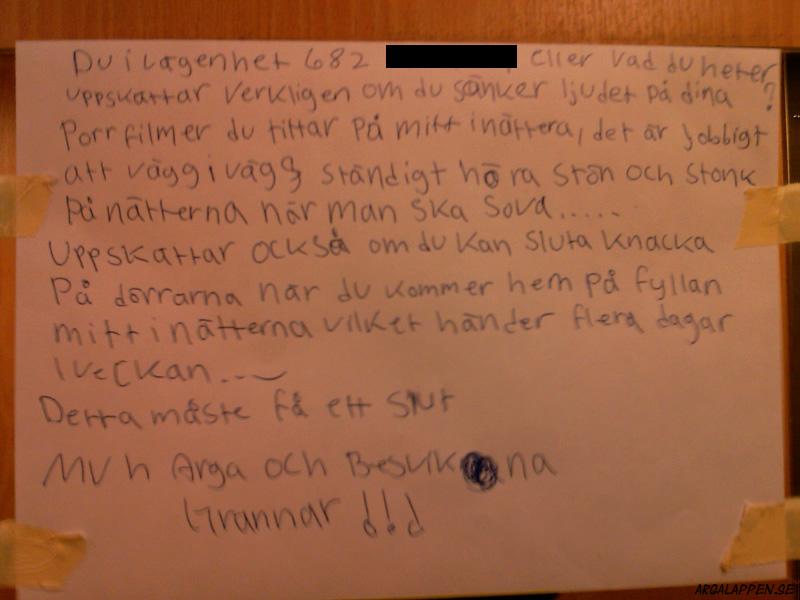 Du i lägenhet 682 , eller vad du heter ?
uppskattar verkligen om du sänker ljudet på dina
Porrfilmer du tittar på mitt inättera, det är jobbigt
att vägg i vägg ständigt höra stön och stonk
På nätterna när man ska sova......
Uppskattar också om du kan sluta knacka
På dörrarna när du kommer hem på fyllan
mitt i nätterna vilket händer flera dagar
i veckan...
Detta måste få ett slut
MVh Arga och Besvikna
Grannar !!!
ARGALAPPEN.SE